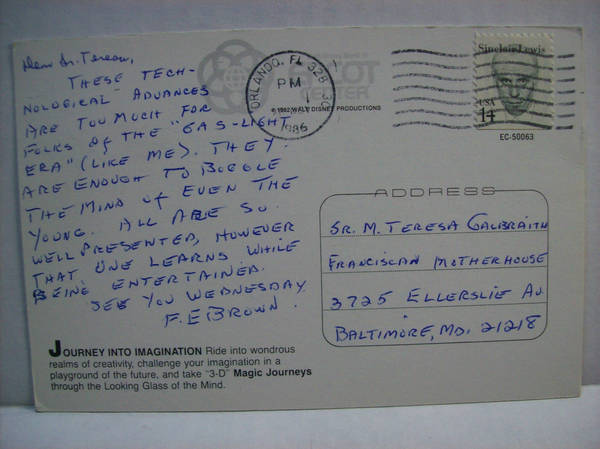 Dear Sr. Teresa,
THESE TECH-
NOLOGICAL ADVANCES
ARE TOO MUCH FOR
FOLKS OF THE "GAS-LIGHT
ERA" (LIKE ME). THEY
ARE ENOUGH TO BOGGLE
THE MIND OF EVEN THE
YOUNG. ALL ARE SO
WELL PRESENTED, HOWEVER
THAT ONE LEARNS WHILE
BEING ENTERTAINED.
SEE YOU WEDNESDAY
F. E BROWN.
JOURNEY INTO IMAGINATION Ride into wondrous
realms of creativity, challenge your imagination in a
playground of the future, and take "3-D" Magic Journeys
through the Looking Glass of the Mind.
EPCOT
CENTER
© 1982 WALT DISNEY PRODUCTIONS
ORLANDO, FL 328
PM
1986
Sinclair Lewis
USA
14
EC-50063
ADDRESS
SR. M. TERESA GALBRAITH
FRANCISCAN MOTHERHOUSE
3725 ELLERSLIE AV.
BALTIMORE, MD. 21218